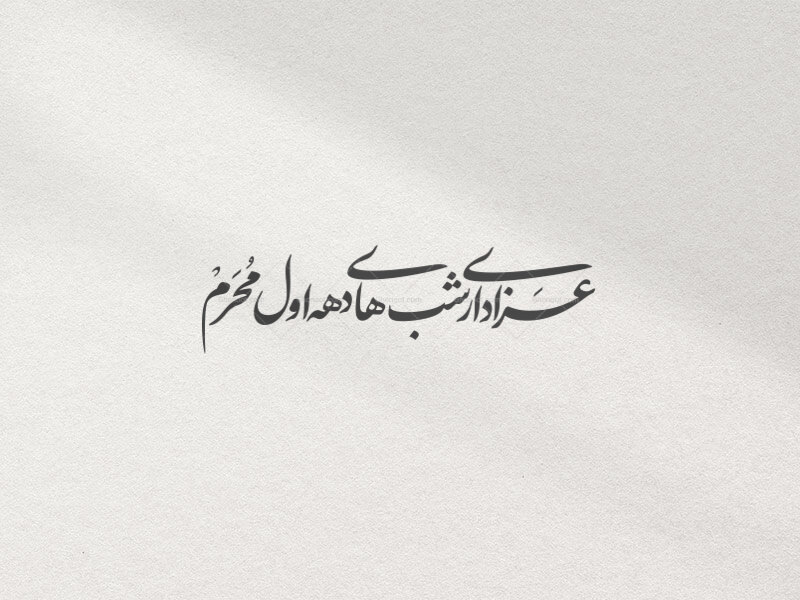 عَزاداری شب های دهه اول مُحَرّمْ